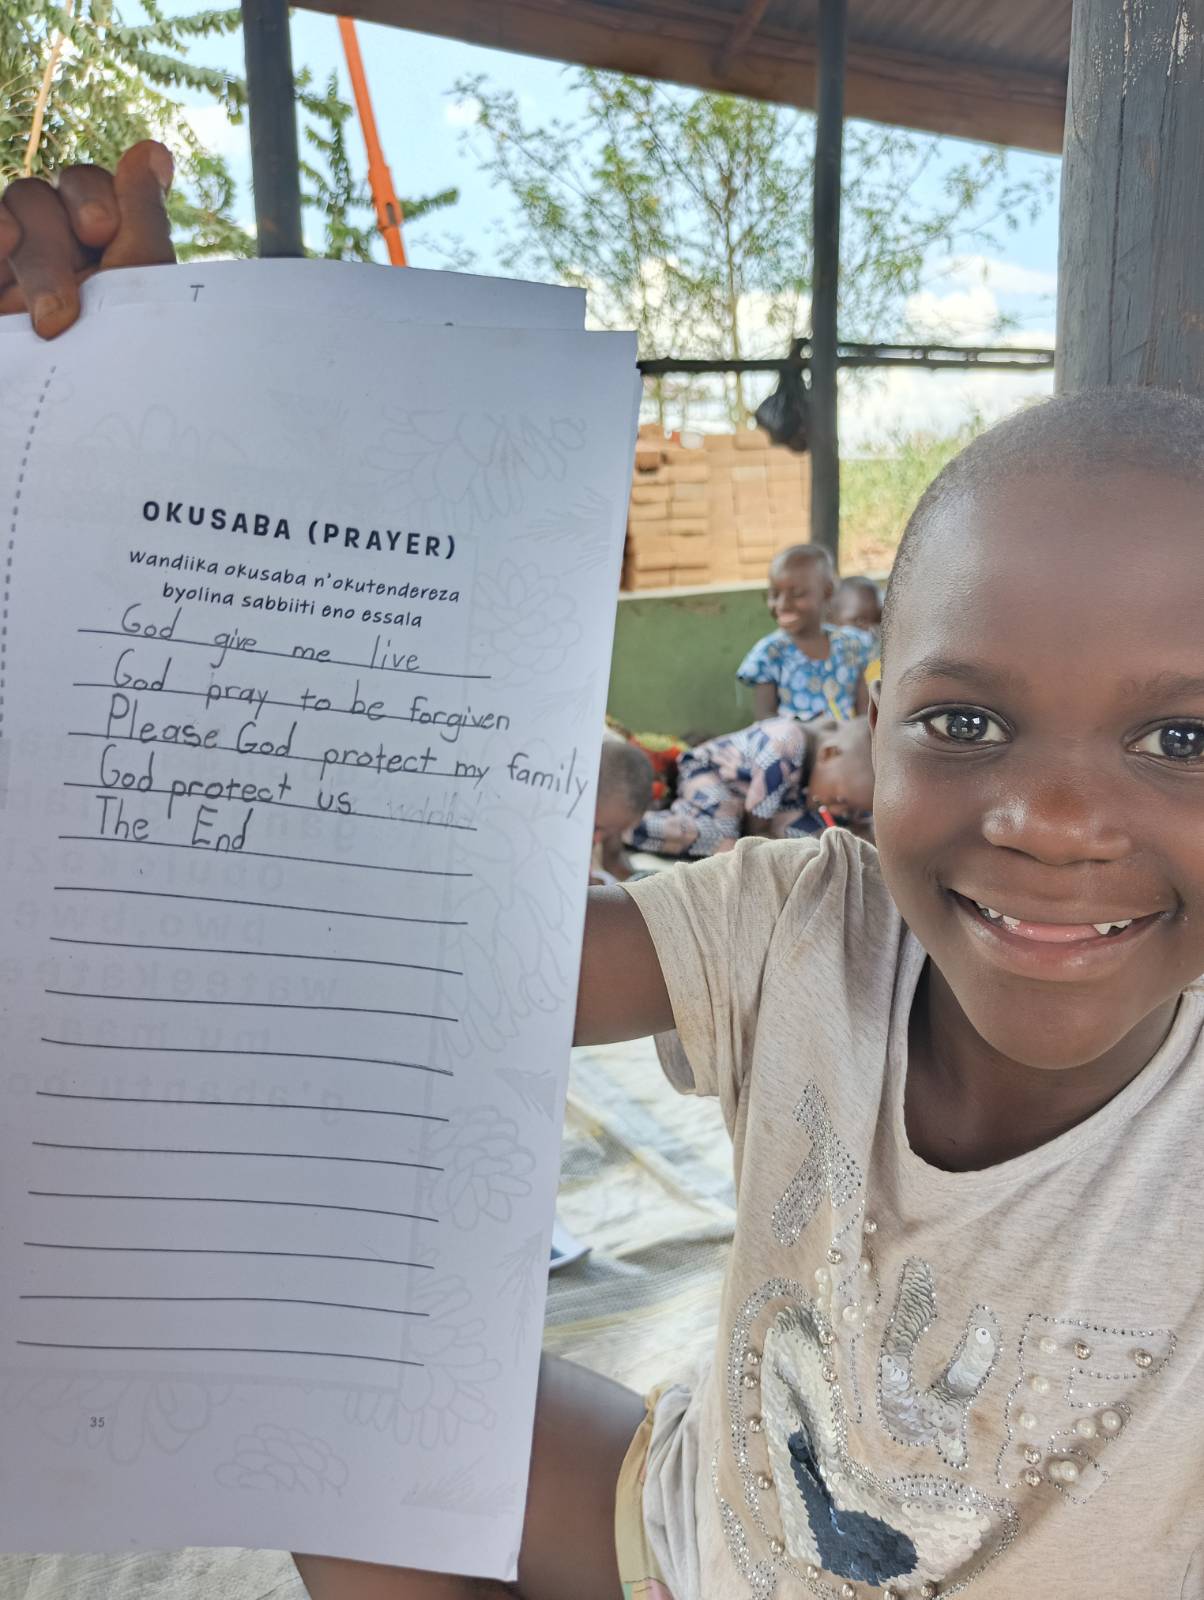 T
OKUSABA (PRAYER)
wandiika okusaba n'okutendereza
byolina sabbiiti eno essala
God give me live
God pray to be forgiven
Please God protect my family
God protect us
The End
35